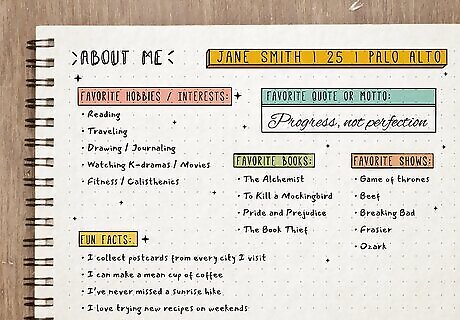 ABOUT ME
JANE SMITH | 25 | PALO ALTO
FAVORITE HOBBIES / INTERESTS:
• Reading
• Traveling
• Drawing / Journaling
• Watching K-dramas / Movies
• Fitness / Calisthenics
FAVORITE QUOTE OR MOTTO:
Progress, not perfection
FAVORITE BOOKS:
• The Alchemist
• To Kill a Mockingbird
• Pride and Prejudice
• The Book Thief
FAVORITE SHOWS:
• Game of thrones
• Beef
• Breaking Bad
• Frasier
• Ozark
FUN FACTS:
• I collect postcards from every city I visit
• I can make a mean cup of coffee
• I've never missed a sunrise hike
• I love trying new recipes on weekends